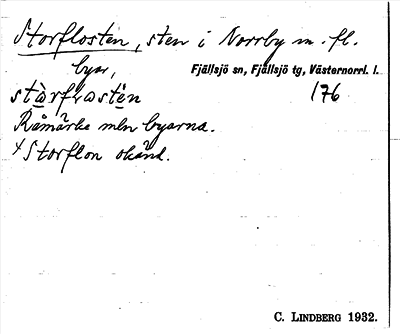 Storflosten, sten i Norrby m. fl.
byar,
Fjällsjö sn, Fjällsjö tg, Västernorrl. l.
176
Råmärke mln byarna.
+Storflon okänd.
C. LINDBERG 1932.